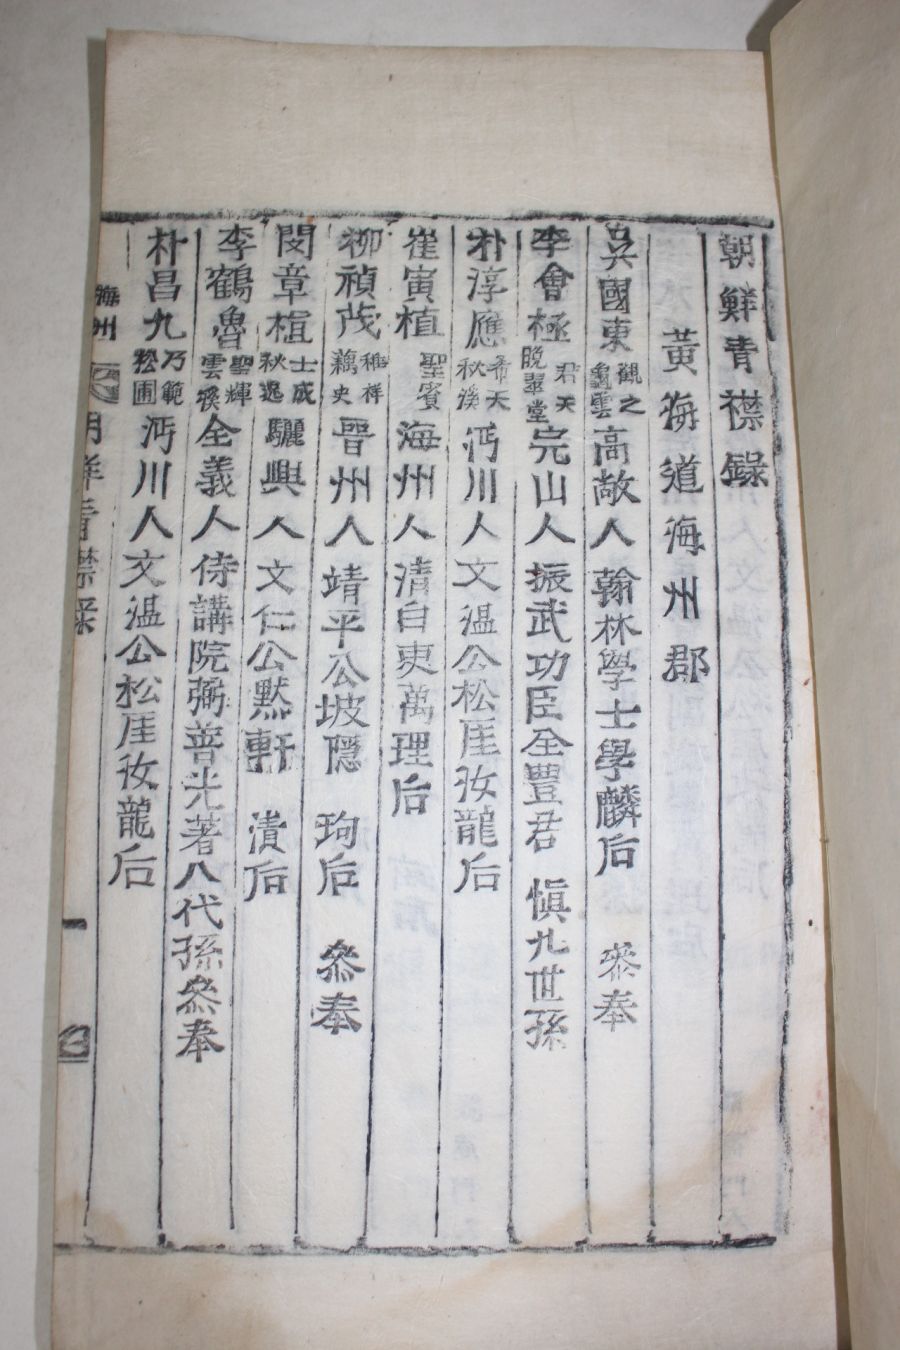 朝鮮青襟錄
黃海道海州郡
吳國東 觀之 龜雲 高敞人翰林學士學麟后 叅奉
李會極 君天 晩翠堂 完山人振武功臣全豊君 愼九世孫
朴淳應 希天 秋溪 沔川人文温公松厓汝龍后
崔寅植 聖賓 海州人清白吏萬理后
柳禎茂 稚祥 藕史 晉州人靖平公坡隱 珣后 叅奉
閔章植 士成 秋逸 驪興人文仁公黙軒 漬后
李鶴魯 聖輝 雲溪 全義人侍講院弼善光著八代孫叅奉
朴昌九 乃範 松圃 沔川人文温公松厓汝龍后
海州 朝鮮青襟錄 一